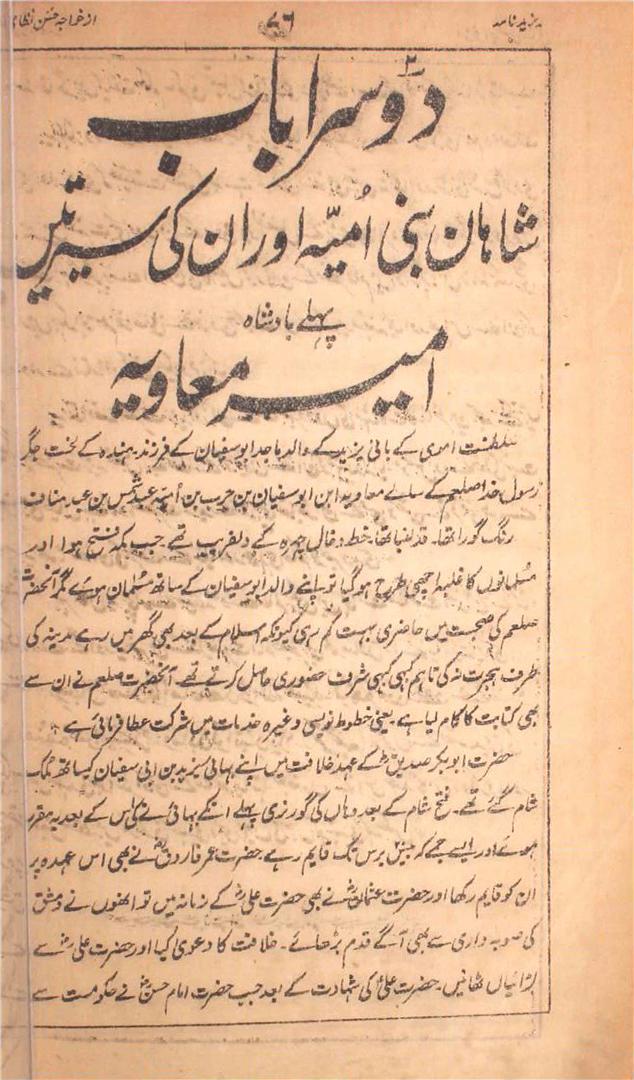 یزید نامہ ۷۶ از خواجہ حسن نظا
دوسرا باب
۲
شاہان بنی اُمیّہ اور ان کی سیرتیں
پہلے بادشاہ
امیر معاویہ
سلطنت اموی کے بانی یزید کے والد ماجد ابوسفیان کے فرزند ہندہ کے لخت جگر
رسول خدا صلعم کے سالے معاویہ ابن ابوسفیان بن حرب بن اُمیّہ عبدشمس بن عبد مناف
رنگ گورا تھا۔ قد لنبا تھا۔ خط و خال چہرہ کے دلفریب تھے۔ جب مکہ فتح ہوا اور
مسلمانوں کا غلبہ اچھی طرح ہوگیا تو اپنے والد ابوسفیان کے ساتھ مسلمان ہوئے مگر آنحضرت
صلعم کی صحبت میں حاضری بہت کم رہی کیونکہ اسلام کے بعد بھی گھر میں رہے مدینہ کی
طرف ہجرت نہ کی تاہم کبھی کبھی شرف حضوری حاصل کرتے تھے۔ آنحضرت صلعم نے ان سے
بھی کتابت کا کام لیا ہے۔ یعنی خطوط نویسی وغیرہ خدمات میں شرکت عطا فرمائی ہے۔
حضرت ابوبکر صدیق رضؓ کے عہد خلافت میں اپنے بھائی یزید بن ابی سفیان کیساتھ ملک
شام گئے تھے۔ فتح شام کے بعد وہاں کی گورنری پہلے انکے بھائی نے کی اس کے بعد یہ مقرر
ہوئے اور ایسے جمے کہ بیس برس تک قایم رہے۔ حضرت عمر فاروق رضؓ نے بھی اس عہدہ پر
ان کو قایم رکھا اور حضرت عثمان رضؓ نے بھی حضرت علی رضؓ کے زمانہ میں تو انھوں نے دمشق
کی صوبہ داری سے بھی آگے قدم بڑھائے۔ خلافت کا دعویٰ کیا اور حضرت علی رضؓ سے
لڑائیاں ٹھانیں۔ حضرت علی رضؓ کی شہادت کے بعد جب حضرت امام حسن رضؓ نے حکومت سے